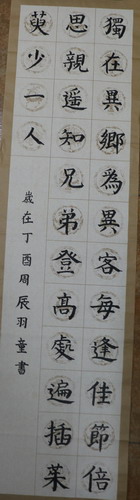 獨在異鄉為異客每逢佳節倍
思親遥知兄弟登高處遍插茱
萸少一人
歲在丁酉周辰羽童書